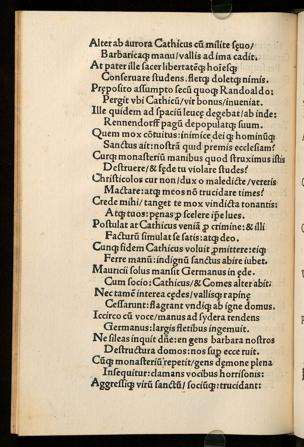 Alter ab aurora Cathicus cū milite ſęuo/
Barbaricaqȝ manu/vallis ad ima cadit.
At pater ille ſacer libertatēqȝ hoīeſqȝ
Conſeruare ſtudens.fletqȝ doletqȝ nimis.
Prępoſito aſſumpto ſecū quoqȝ Randoaldo:
Pergit vbi Cathicū/vir bonus/inueniat.
Ille quidem ad ſpaciū leucę degebat/ab inde:
Rennendorff pagū depopulatqȝ ſuum.
Quem mox cōtuitus:inimice dei qȝ hominūqȝ
Sanctus ait:noſtrā quid premis eccleſiam?
Curqȝ monaſteriū manibus quod ſtruximus iſtis
Deſtruere/& ſęde tu violare ſtudes?
Chriſticolos cur non/dux o maledicte/vereris
Mactare:atqȝ meos nō trucidare times?
Crede mihi/tanget te mox vindicta tonantis:
Atqȝ tuos:penas ꝓ ſcelere ipſe lues.
Poſtulat at Cathicus veniā ꝓ crimine:& illi
Facturū ſimulat ſe ſatis:atqȝ deo.
Cunqȝ fidem Cathicus voluit ꝓmittere:eiqȝ
Ferre manū:indignū ſanctus abire iubet.
Mauricii ſolus manſit Germanus in ęde.
Cum ſocio:Cathicus/& Comes alter abit:
Nec tamē interea cędes/valliſqȝ rapinę
Ceſſarunt:flagrant vndiqȝ ab igne domus.
Iccirco cū voce/manus ad ſydera tendens
Germanus:largis fletibus ingemuit.
Ne ſileas inquit dn̄e:en gens barbara noſtros
Deſtructura domos:nos ſup ecce ruit.
Cūqȝ monaſteriū repetit/gens dęmone plena
Inſequitur:clamans vocibus horriſonis:
Aggreſſiqȝ virū ſanctū/ſociūqȝ:trucidant: